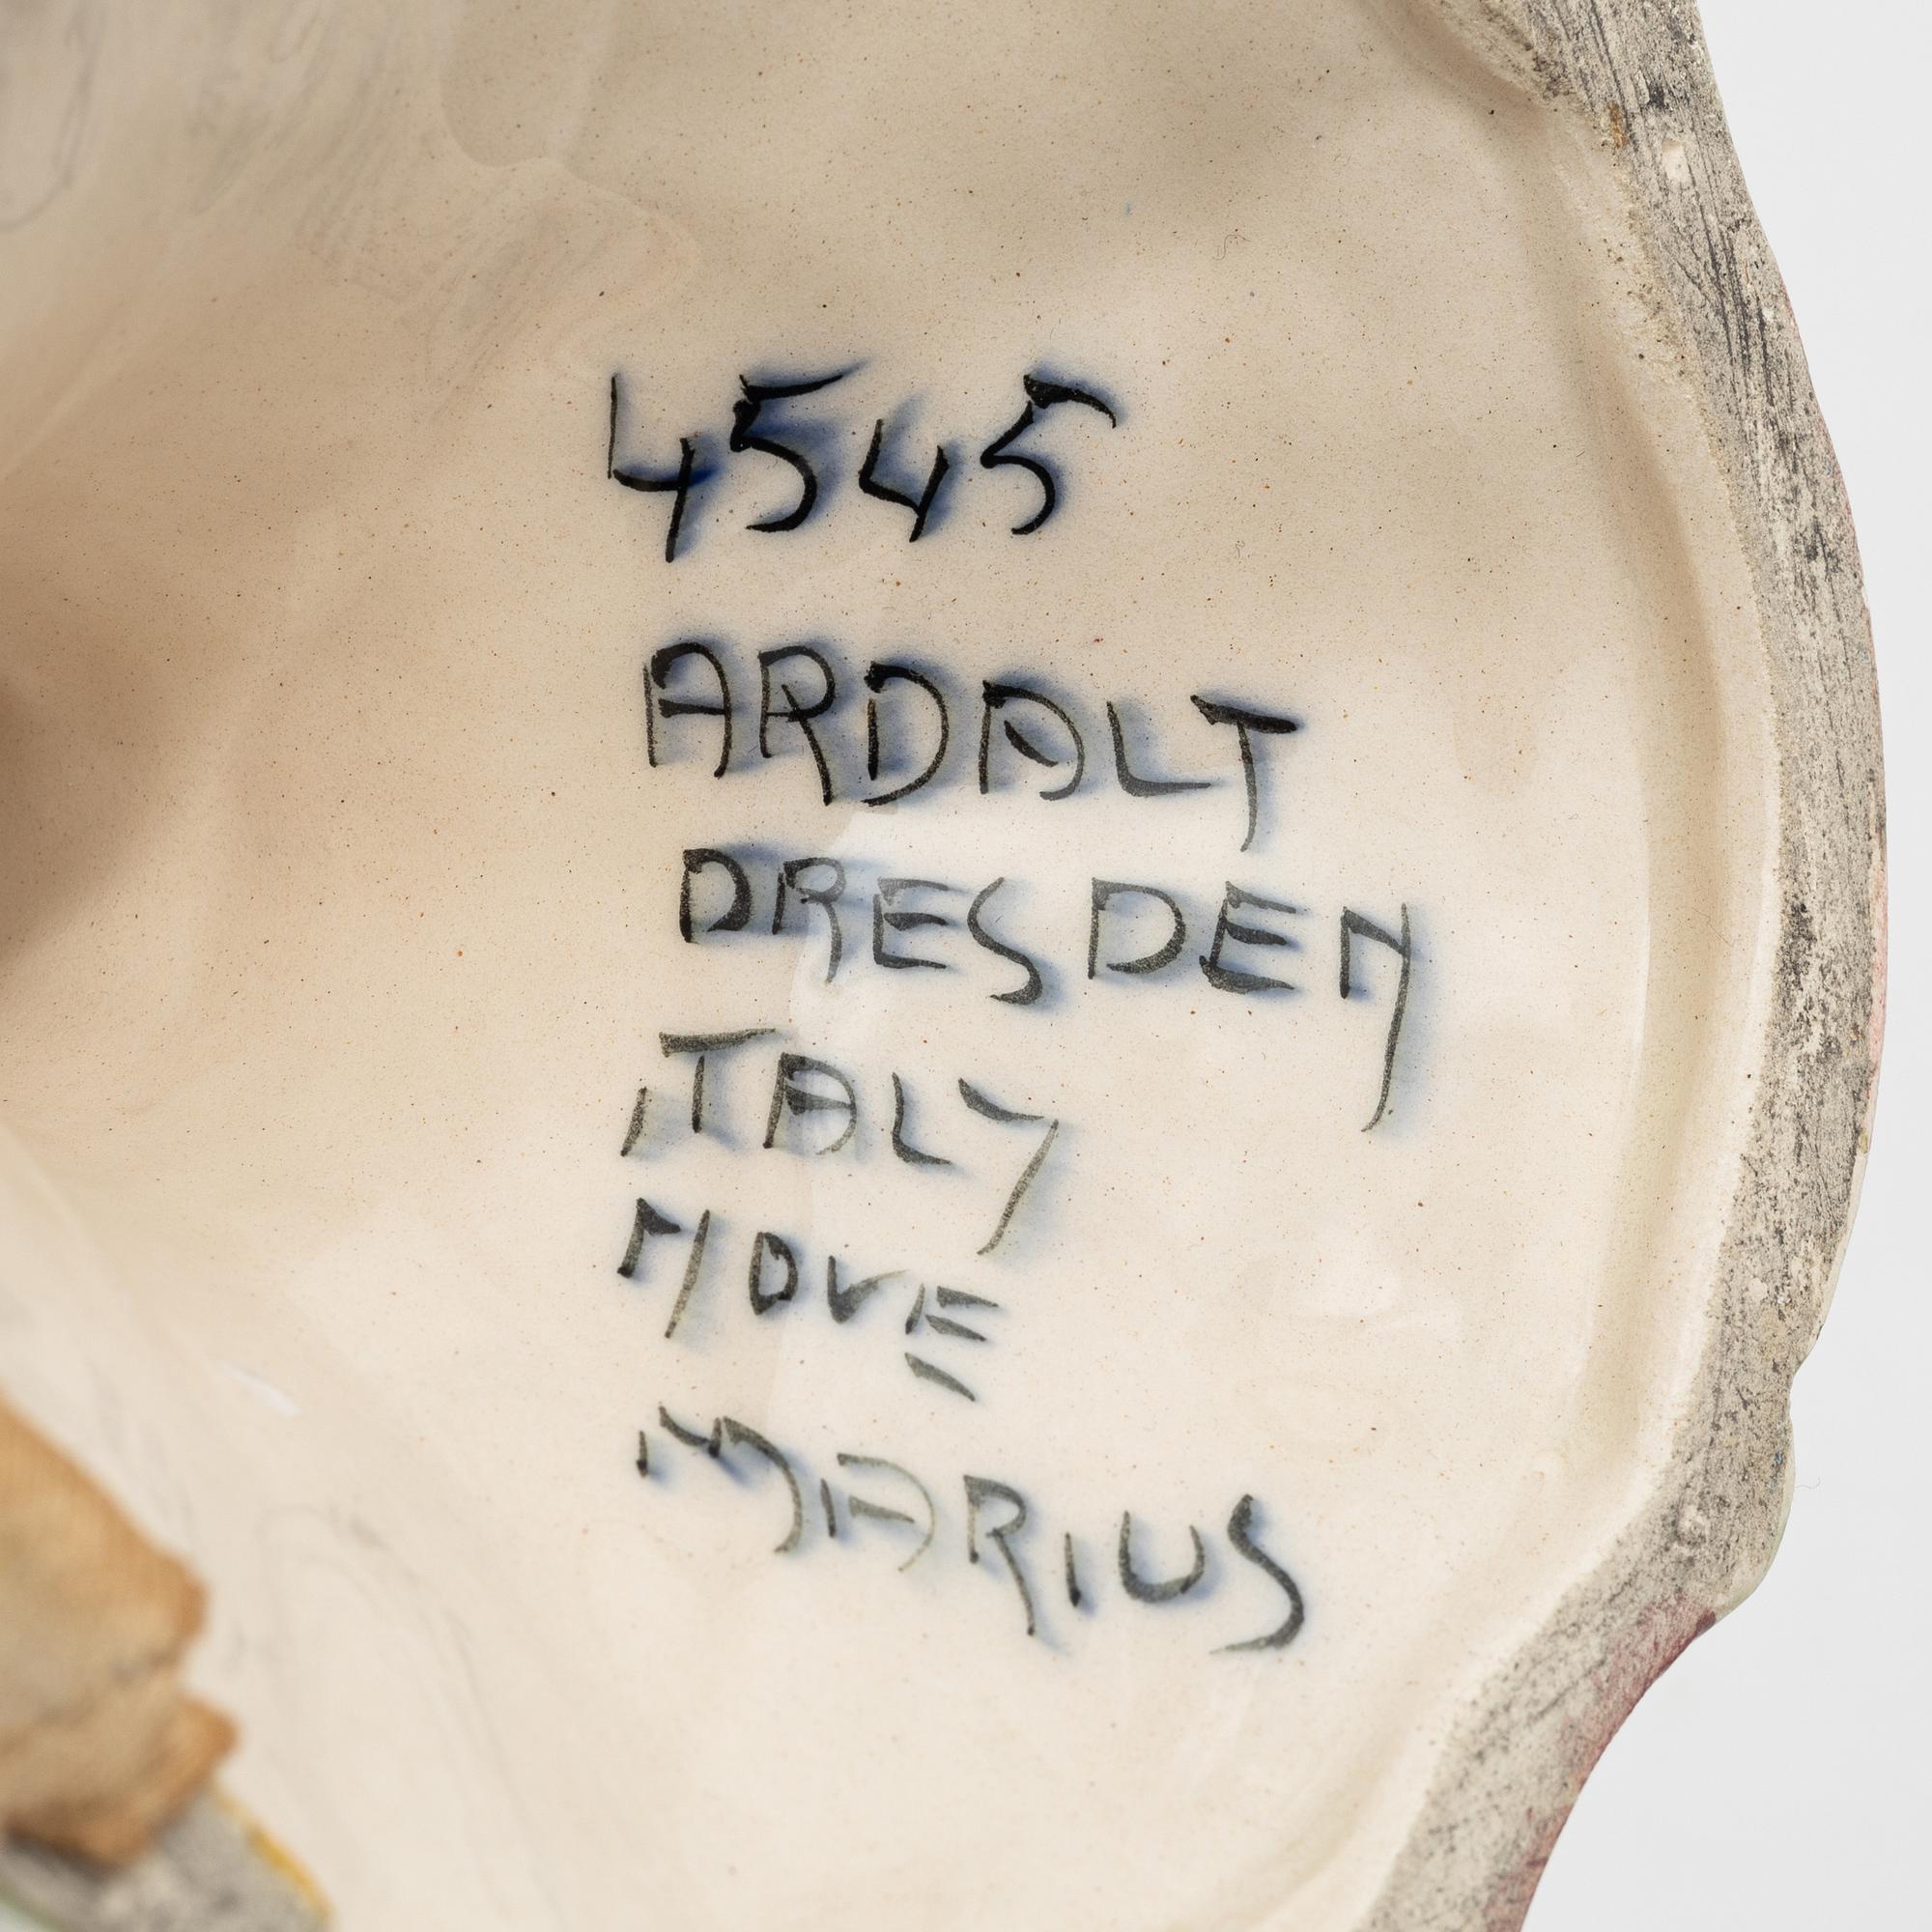 4545
ARDALT
DRESDEN
ITALY
NOVE
MARIUS